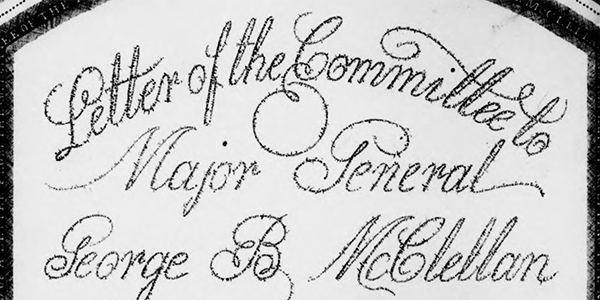 Letter of the Committee to
Major General
George B McClellan